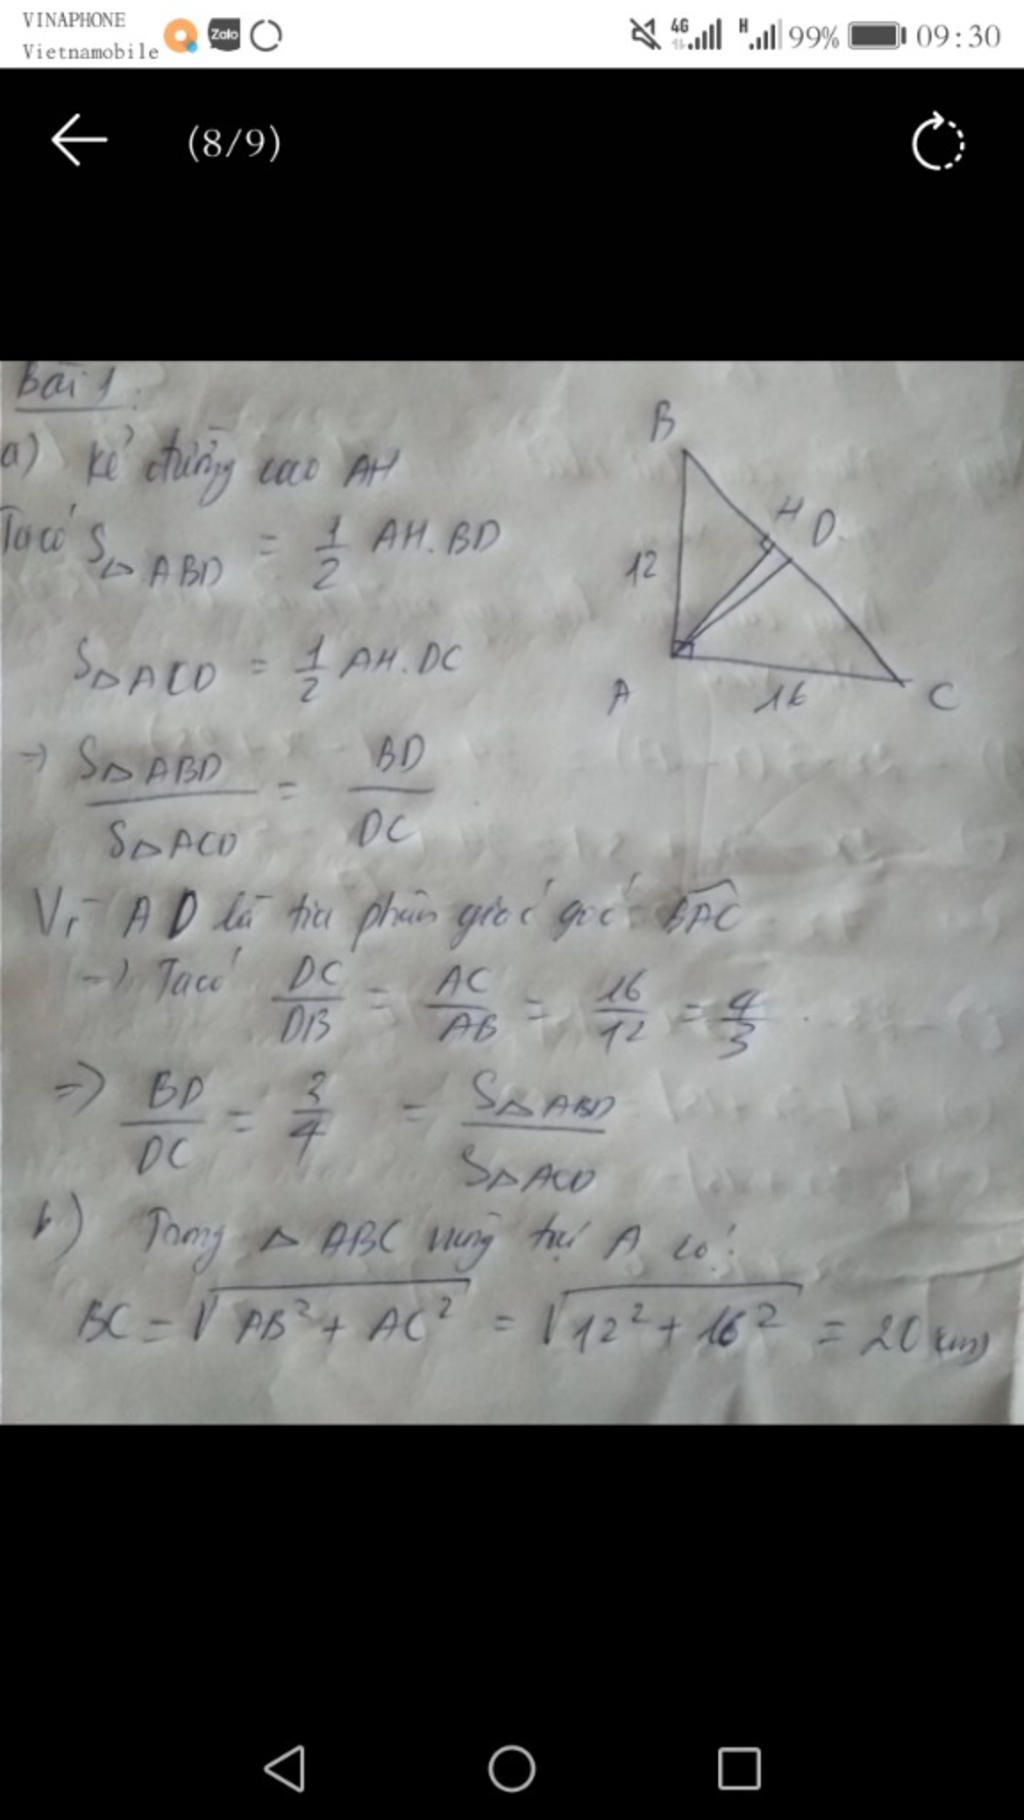 VINAPHONE
Vietnamobile
Zalo
4G
H
99%
09:30
(8/9)
Bài 1:
a) Kẻ đường cao AH
Ta có S△ABD = 1/2 AH.BD
S△ACD = 1/2 AH.DC
→ S△ABD / S△ACD = BD / DC
B
H
D
12
A
16
C
Vì AD là tia phân giác góc BAC
→ Ta có DC/DB = AC/AB = 16/12 = 4/3
=> BD/DC = 3/4 = S△ABD / S△ACD
b) Trong △ABC vuông tại A có:
BC = √(AB² + AC²) = √(12² + 16²) = 20 (cm)